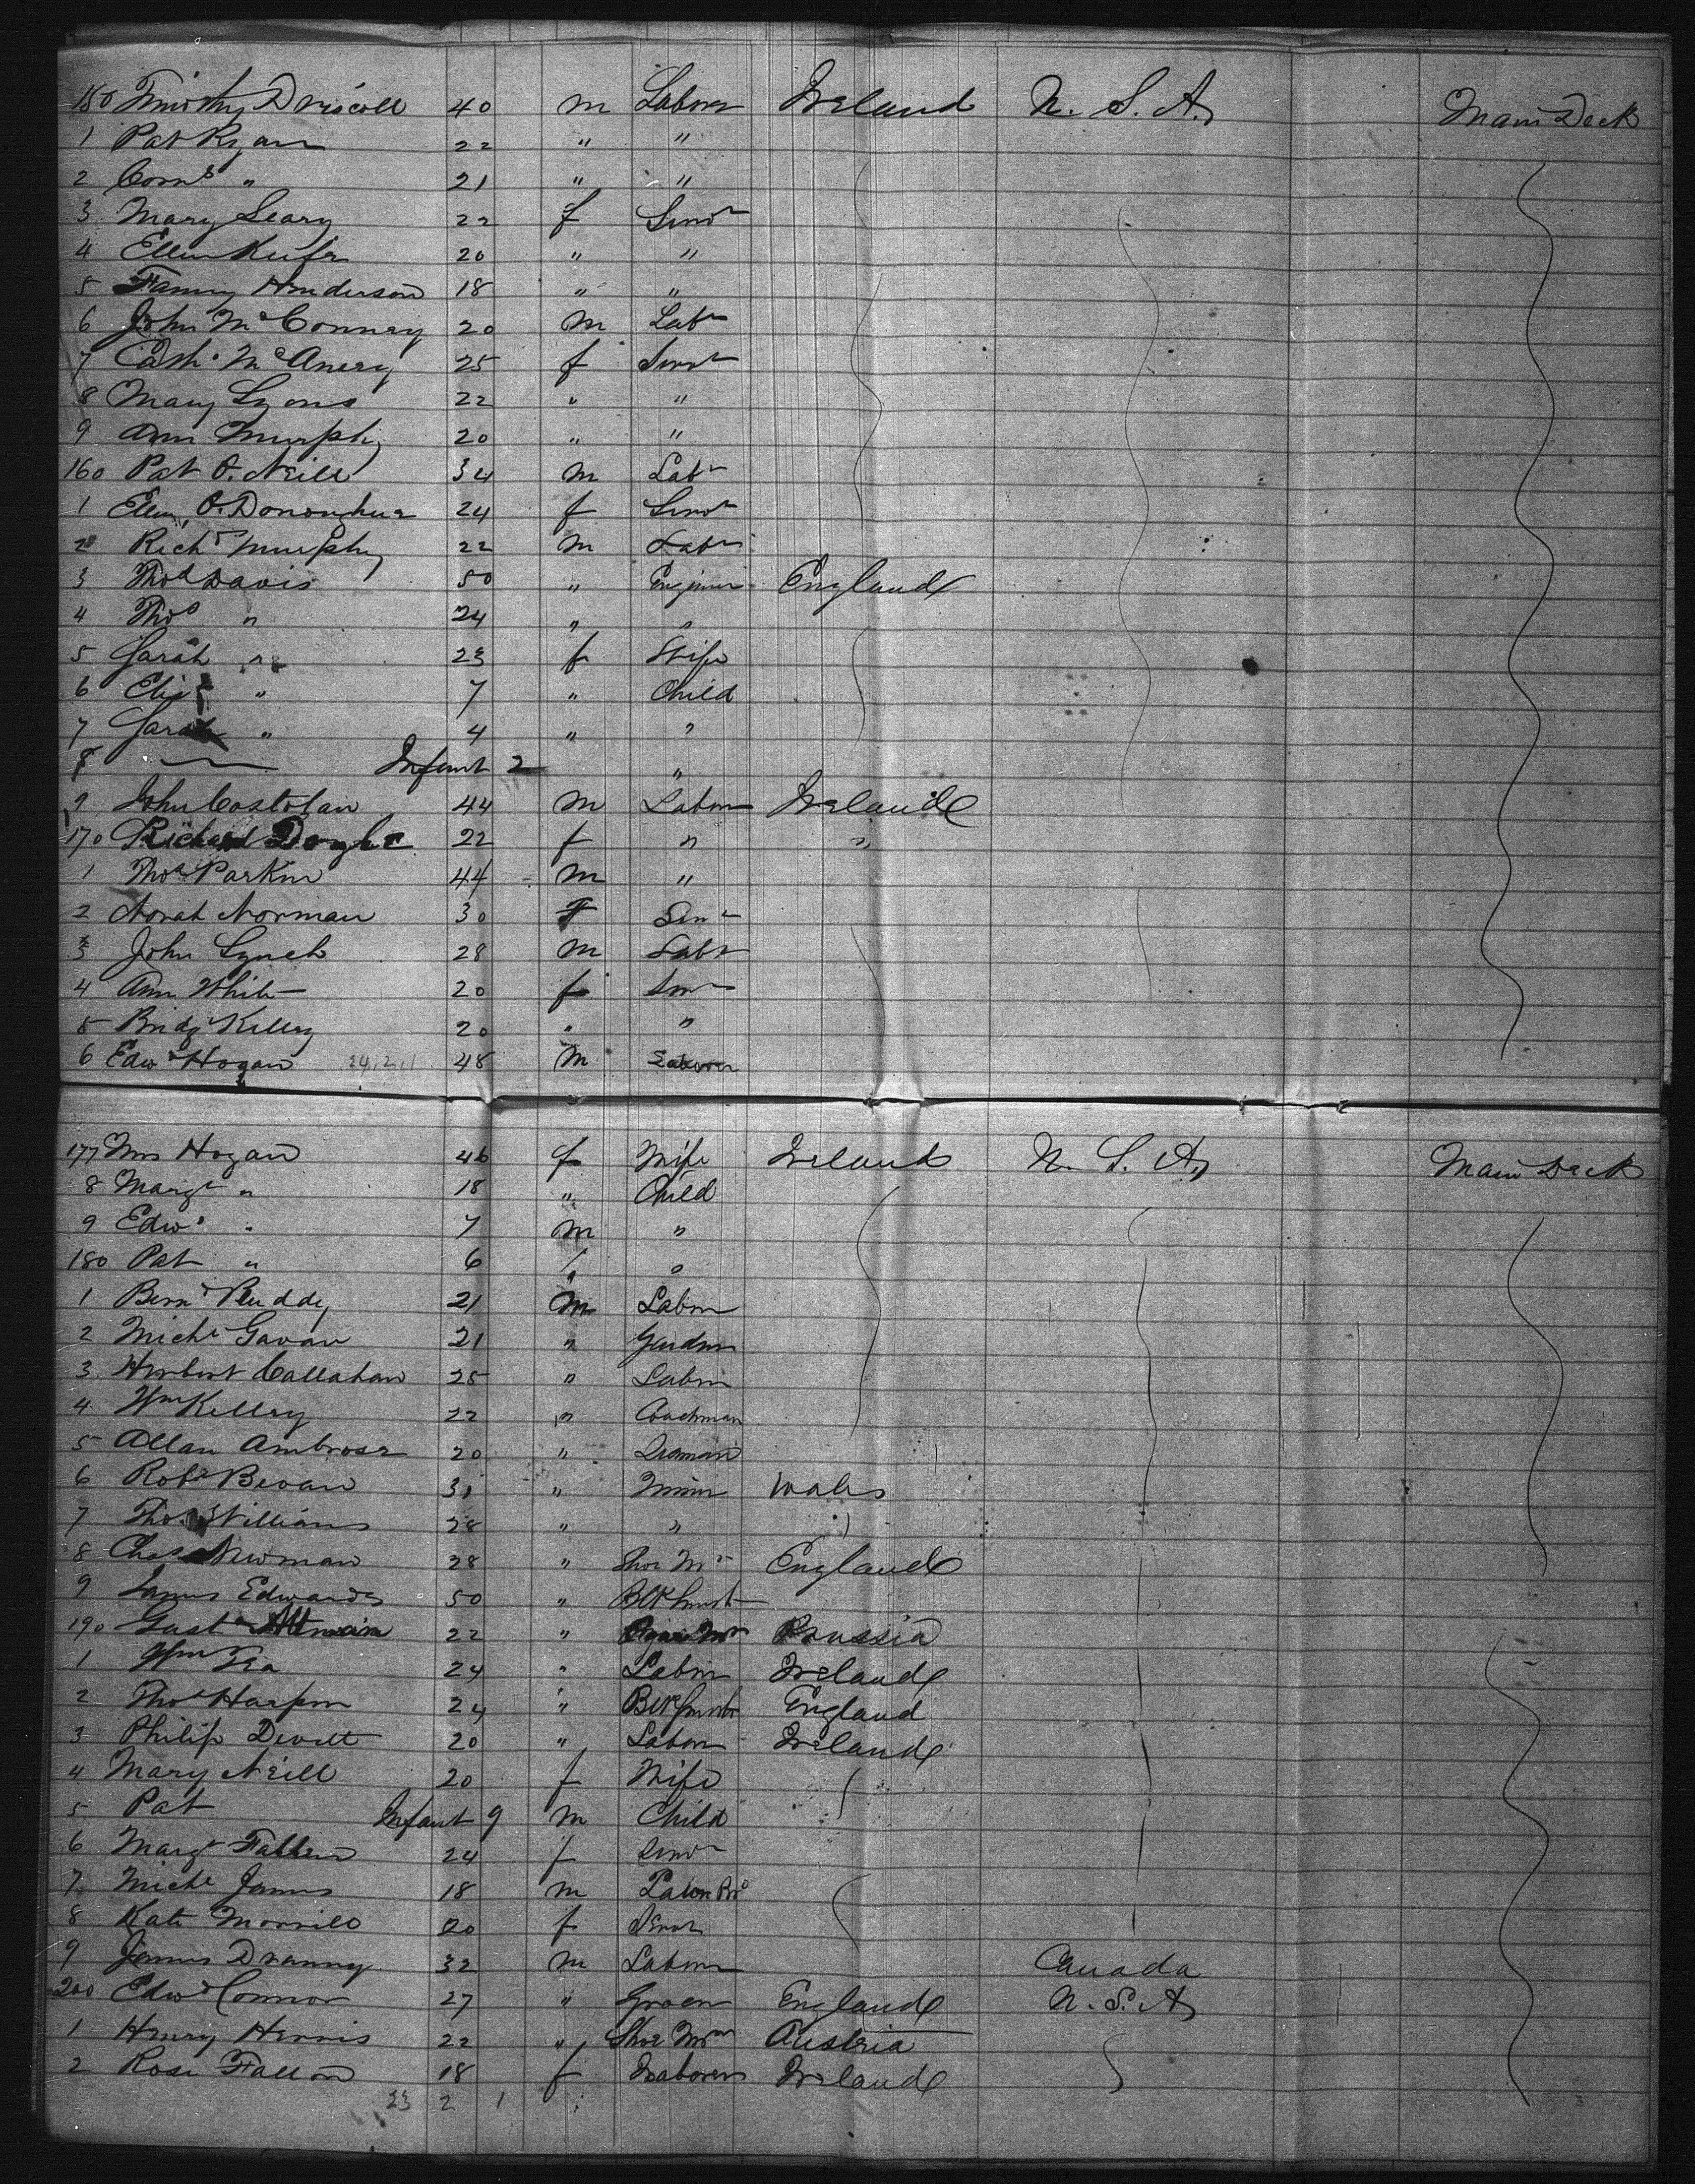 150 Timothy Driscoll 40 m Laborer Ireland U. S. A. Main Deck
1 Pat Ryan 22 " "
2 Corns " 21 " "
3 Mary Leary 22 f Servt
4 Ellen Keefe 20 " "
5 Fanny Henderson 18 " "
6 John McConney 20 m Labr
7 Cath. McAnery 25 f Servt
8 Mary Lyons 22 " "
9 Ann Murphy 20 " "
160 Pat O. Neill 34 m Labr
1 Ellen O. Donoughue 24 f Servt
2 Richd Murphy 22 m Labr
3 Thos Davis 50 " Engineer England
4 Thos " 24 " "
5 Sarah " 23 f Wife
6 Eliz " 7 " Child
7 Sarah " 4 " "
8 Infant 2 "
9 John Costolan 44 m Labor Ireland
170 Richard Doyle 22 f " "
1 Thos Parker 44 m "
2 Norah Norman 30 F Servt
3 John Lynch 28 m Labr
4 Ann White 20 f Servt
5 Bridgt Kelley 20 " "
6 Edwd Hogan 24.2.1 48 m Laborer
177 Mrs Hogan 46 f Wife Ireland U. S. A. Main Deck
8 Margt " 18 " Child
9 Edwd " 7 m "
180 Pat " 6 " "
1 Bernd Ruddy 21 m Labor
2 Michl Gavan 21 " Gardnr
3 Herbert Callahan 25 " Labor
4 Wm Kelley 22 " Coachman
5 Allan Ambrose 20 " Seaman
6 Robt Bevan 31 " Miner Wales
7 Thos Williams 28 " " "
8 Chas Newman 28 " Shoe Mr England
9 James Edwards 50 " Blk Smith
190 Gust 22 " Prussia
1 Wm Rea 24 " Labor Ireland
2 Thos Harper 24 " Blk Smith England
3 Philip Devitt 20 " Labor Ireland
4 Mary Neill 20 f Wife
5 Pat Infant 9 m Child
6 Margt Fallen 24 f Servt
7 Michl James 18 m
8 Kate Morrill 20 f Servt
9 James Dranny 32 m Labor Canada
200 Edwd Connor 27 " Grocer England U. S. A.
1 Henry Herris 22 " Shoe Mr Austria
2 Rose Fallon 18 f Laborer Ireland
23 2 1